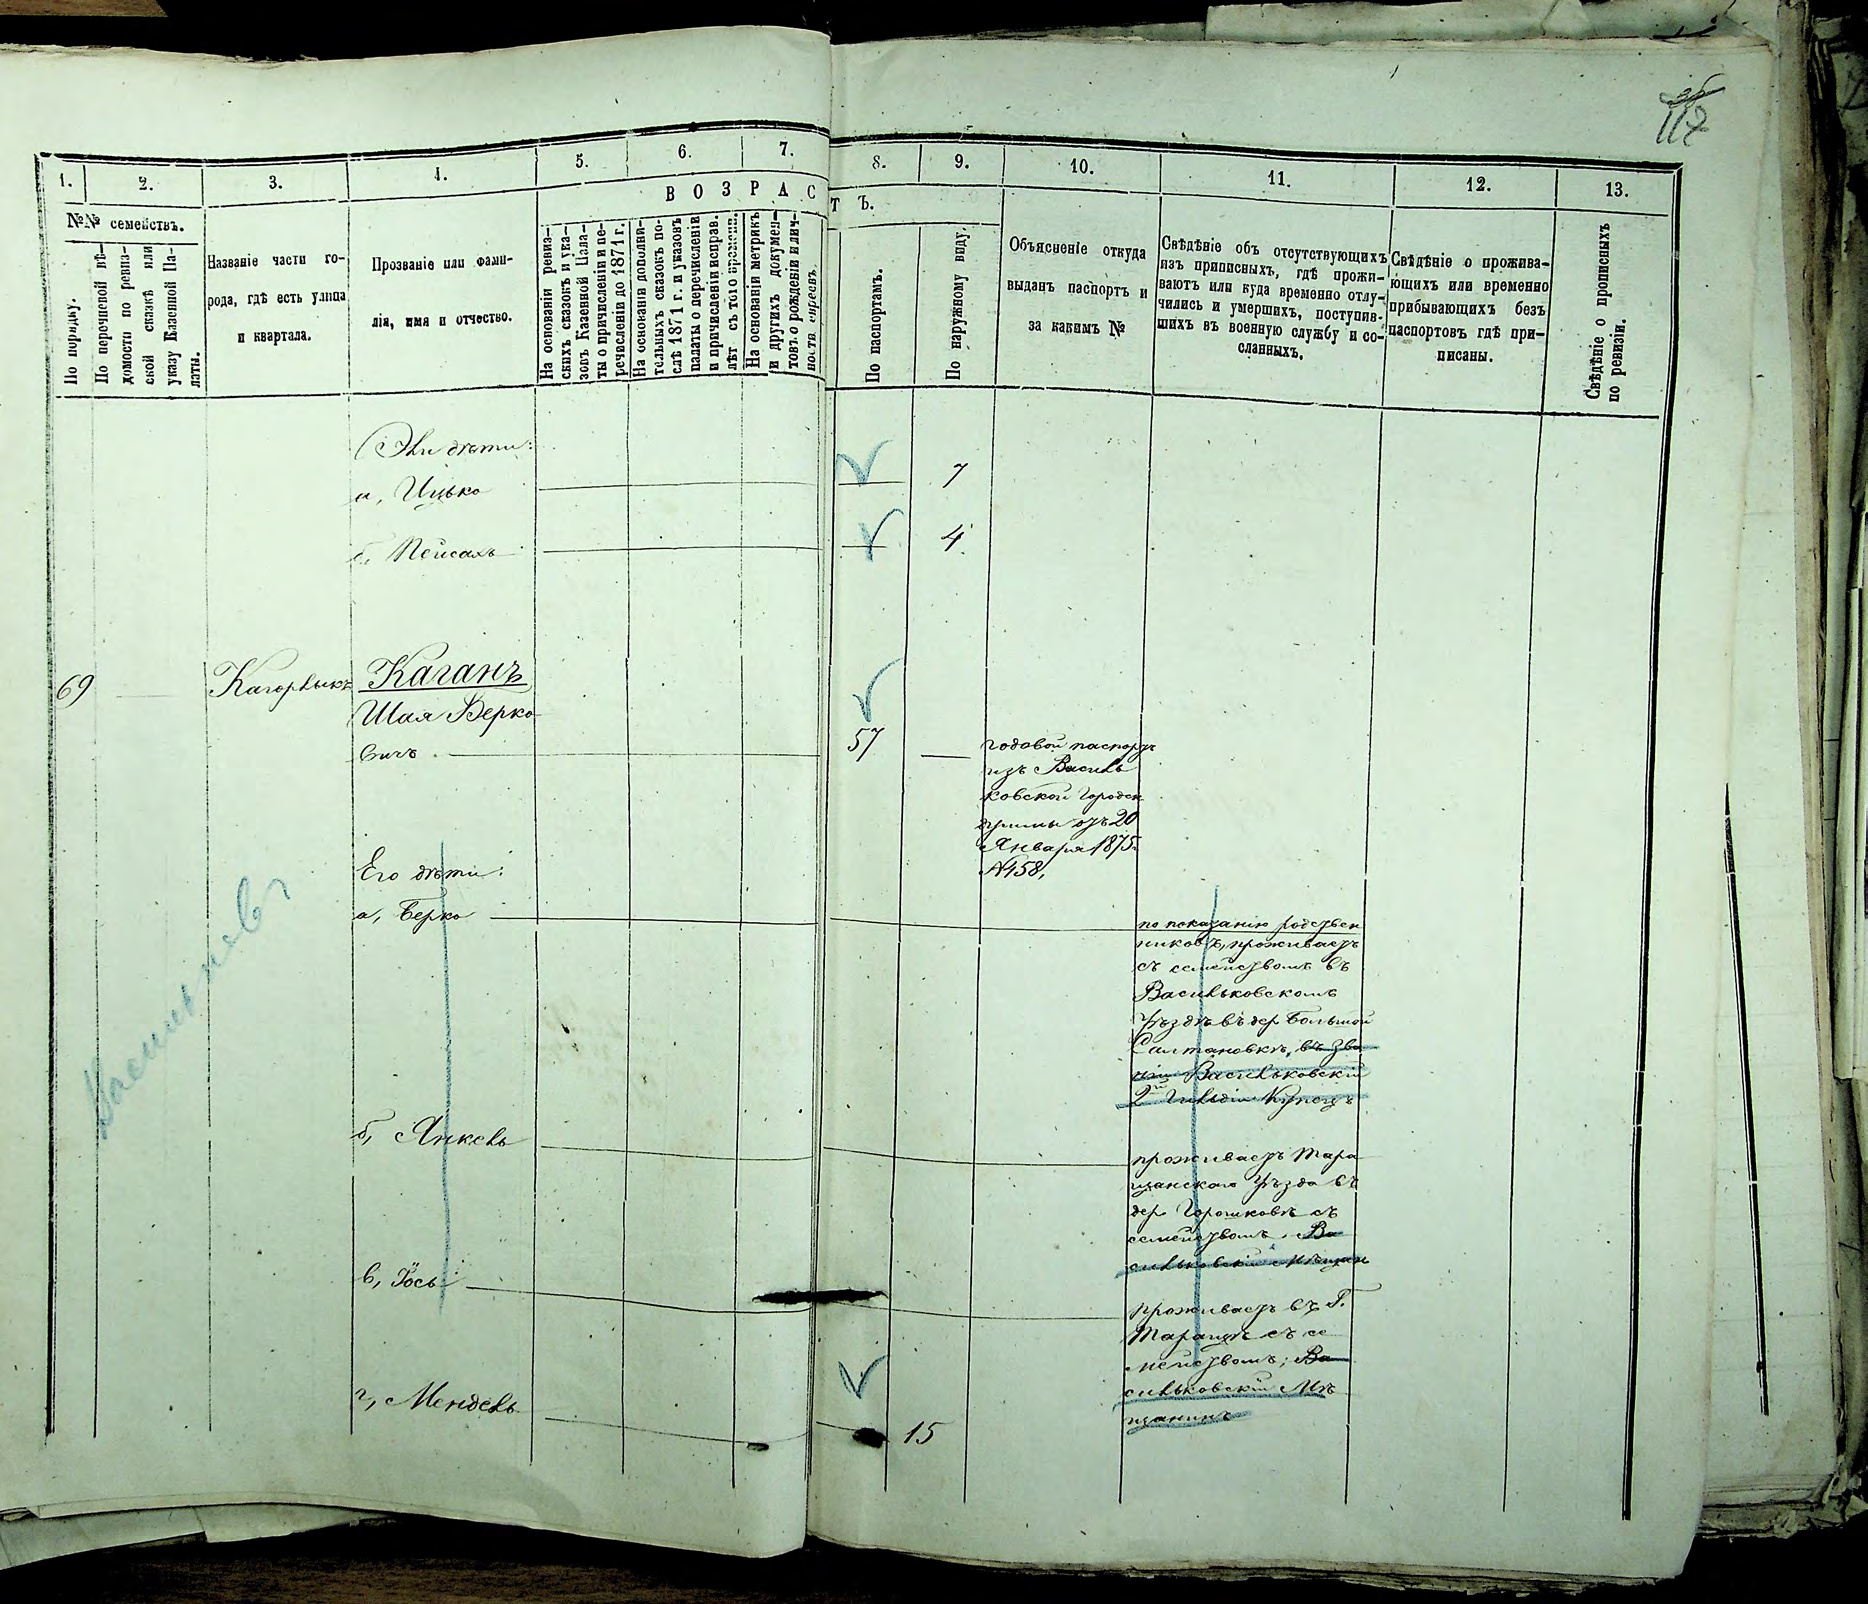 117
1.
2.
3.
4.
5.
6.
7.
8.
9.
10.
11.
12.
13.
№№ семействъ.
По порядку.
По перечневой вѣ-
домости по ревиз-
ской сказкѣ или
указу Казенной Па-
латы.
Названіе части го-
рода, гдѣ есть улица
и квартала.
Прозваніе или фами-
лія, имя и отчество.
ВОЗРАСТЪ.
На основаніи ревиз-
скихъ сказокъ и ука-
зовъ Казенной Пала-
ты о причисленіи и пе-
речисленіи до 1871 г.
На основаніи дополни-
тельныхъ сказокъ по-
слѣ 1871 г. и указовъ
палаты о перечисленіи
и причисленіи исправ.
лѣт съ того времени.
На основаніи метрикъ
и другихъ докумен-
товъ о рожденіи и лич-
ности евреевъ.
По паспортамъ.
По наружному виду.
Объясненіе откуда
выданъ паспортъ и
за какимъ №
Свѣдѣніе объ отсутствующихъ
изъ приписныхъ, гдѣ прожи-
ваютъ или куда временно отлу-
чились и умершихъ, поступив-
шихъ въ военную службу и со-
сланныхъ.
Свѣдѣніе о прожива-
ющихъ или временно
прибывающихъ безъ
паспортовъ гдѣ при-
писаны.
Свѣдѣніе о прописныхъ
по ревизіи.
дѣти:
а, Ицько 7
б, Пейсахъ 4
69 Кагарлыкъ Каганъ
Шая Берко-
вичъ 57
годовой паспортъ
изъ Василь
ковской Городск
думы отъ 20
Января 1875 г.
№458,
Его дѣти:
а, Берко
по показанію родствен
никовъ, проживаетъ
съ семействомъ въ
Васильковскомъ
уѣздѣ въ дер Большой
Салтановкѣ, въ зва
ніи Васильковскій
2й Гильдіи Купецъ
б, Янкель
проживаетъ Тара
щанского уѣзда въ
дер Горошковѣ съ
семействомъ. Ва
сильковскій Мѣщан
в, Іось
проживаетъ въ Г.
Таращѣ съ се
мействомъ; Ва
сильковскій Мѣ
щанинъ
г, Мендель 15